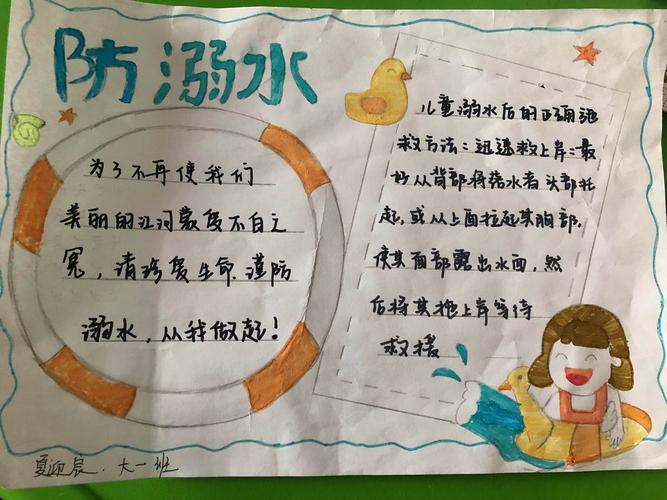 防溺水
为了不再使我们
美丽的江河蒙受不白之
冤，请珍爱生命.谨防
溺水，从我做起！
儿童溺水后的正确施
救方法：迅速救上岸：最
好从背部将溺水者头部托
起，或从上面拉起其胸部，
使其面部露出水面，然
后将其拖上岸等待
救援
夏 辰. 大一班